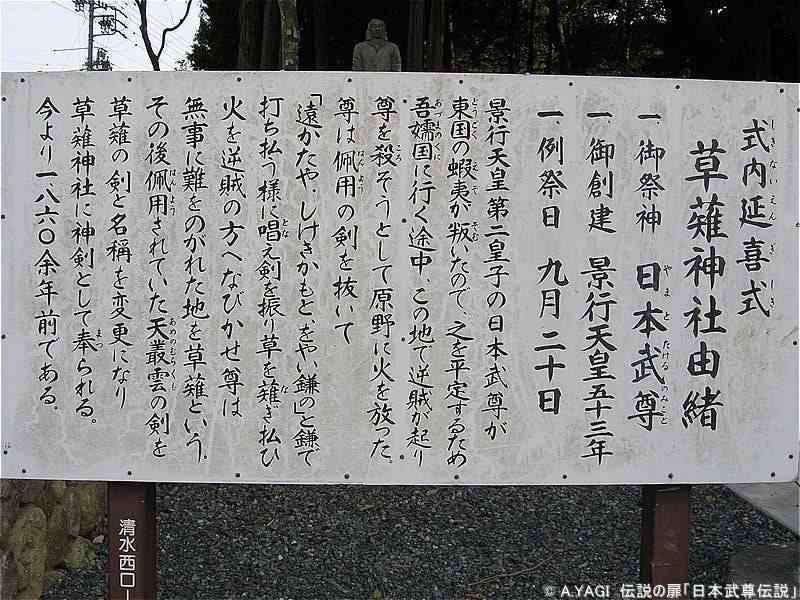 式内延喜式
草薙神社由緒
一、御祭神 日本武尊
一、御創建 景行天皇五十三年
一、例祭日 九月二十日
景行天皇第二皇子の日本武尊が
東国の蝦夷が叛いたので、之を平定するため
吾嬬国に行く途中、この地で逆賊が起り
尊を殺そうとして原野に火を放った。
尊は佩用の剣を抜いて
「遠かたや、しけきかもと、をやい鎌の」と鎌で
打ち払う様に唱え剣を振り草を薙ぎ払ひ
火を逆賊の方へなびかせ尊は
無事に難をのがれた地を草薙という。
その後佩用されていた天叢雲の剣を
草薙の剣と名稱を変更になり
草薙神社に神剣として奉られる。
今より一、八六〇余年前である。
清水西ロー
© A.YAGI 伝説の扉「日本武尊伝説」